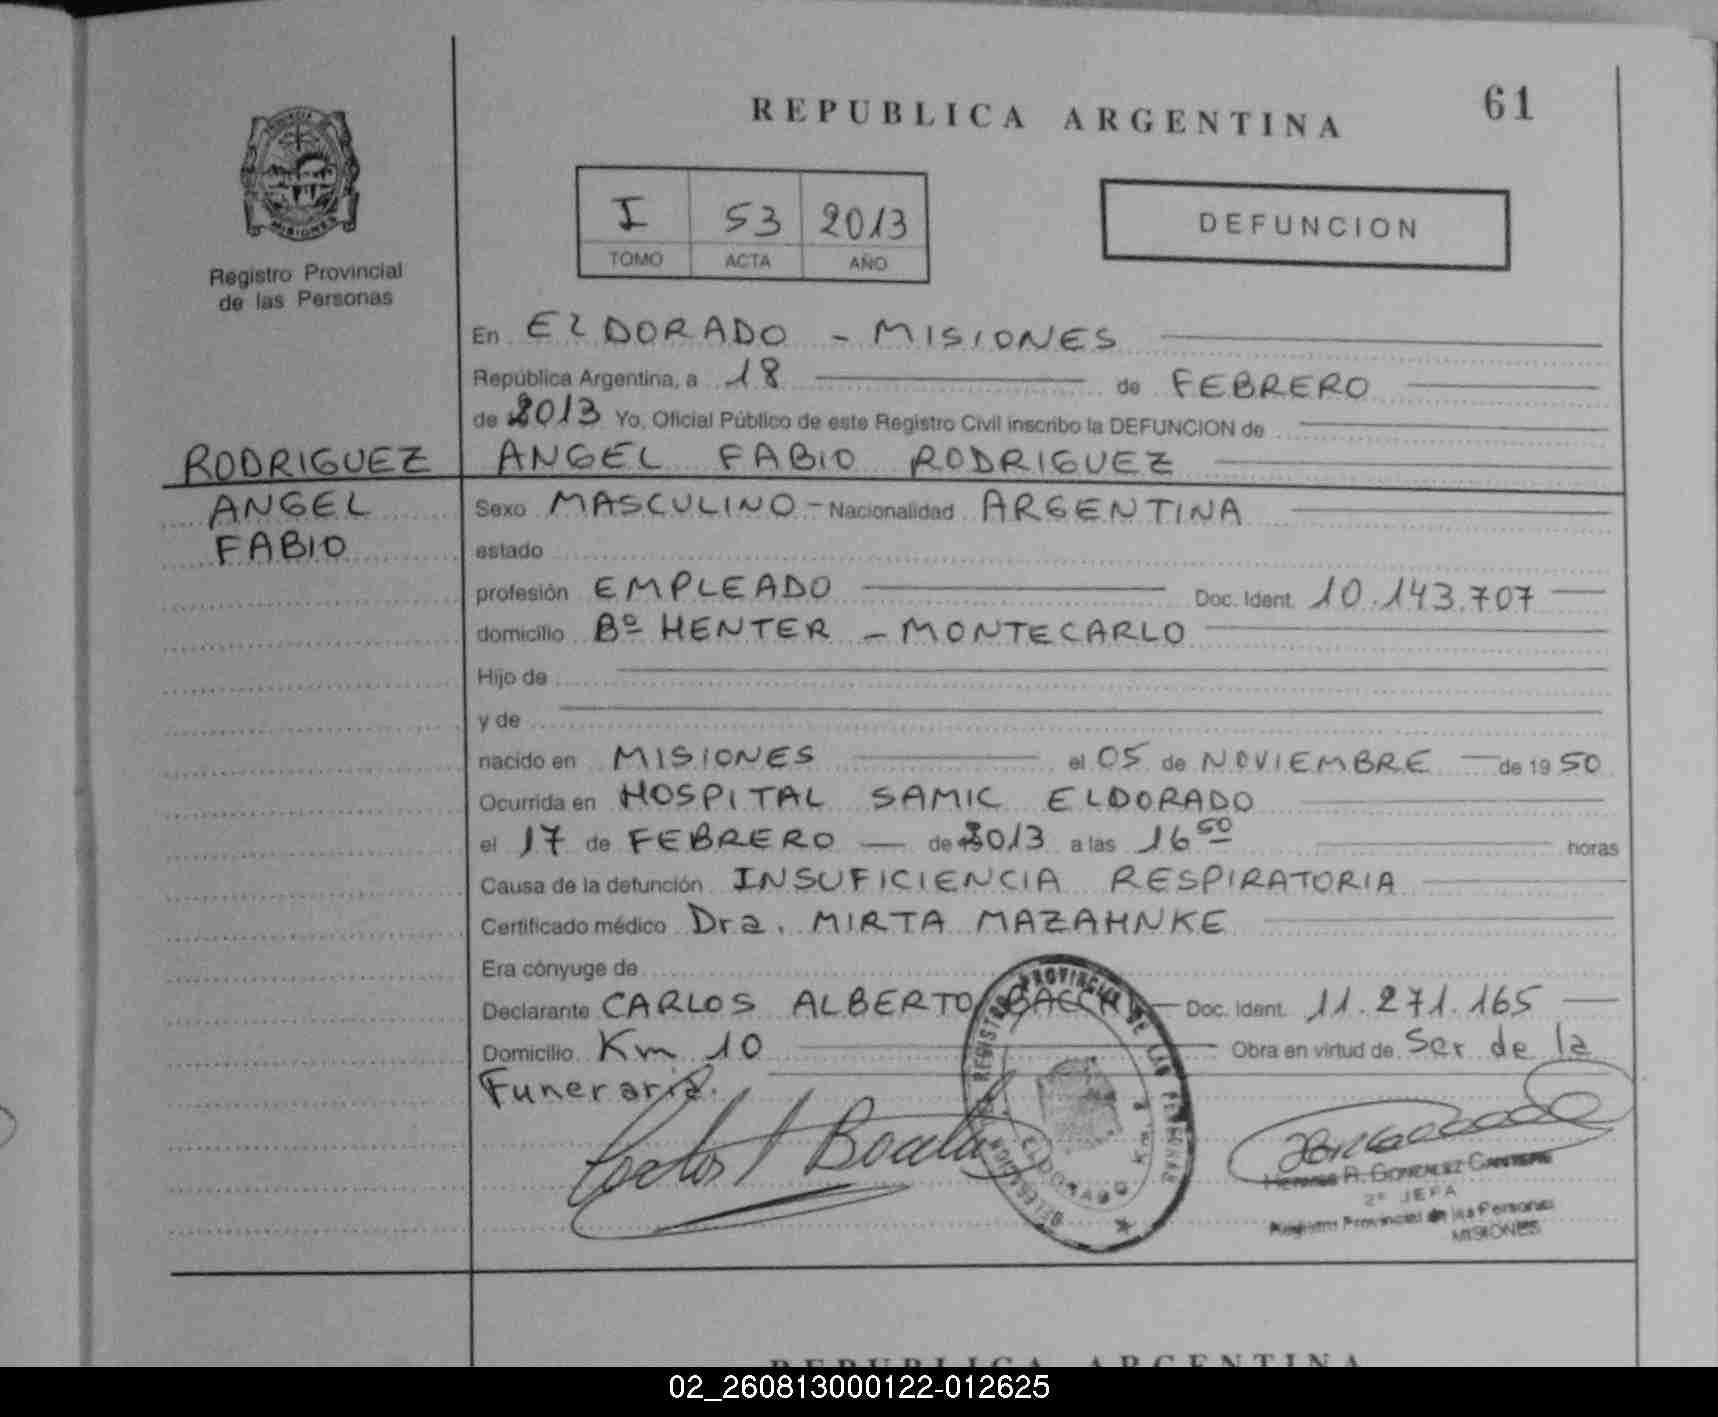 REPUBLICA ARGENTINA
61
PROVINCIA
MISIONES
Registro Provincial
de las Personas
I 53 2013
TOMO ACTA AÑO
DEFUNCION
En ELDORADO - MISIONES
República Argentina, a 18 de FEBRERO
de 2013 Yo, Oficial Público de este Registro Civil inscribo la DEFUNCION de
RODRIGUEZ ANGEL FABIO RODRIGUEZ
ANGEL
FABIO
Sexo MASCULINO - Nacionalidad ARGENTINA
estado
profesión EMPLEADO Doc. Ident. 10.143.707
domicilio Bº HENTER - MONTECARLO
Hijo de
y de
nacido en MISIONES el 05 de NOVIEMBRE de 19 50
Ocurrida en HOSPITAL SAMIC ELDORADO
el 17 de FEBRERO de 2013 a las 16 50 horas
Causa de la defunción INSUFICIENCIA RESPIRATORIA
Certificado médico Dra. MIRTA MAZAHNKE
Era cónyuge de
Declarante CARLOS ALBERTO Doc. Ident. 11.271.165
Domicilio Km 10 Obra en virtud de Ser de la
Funeraria.
REGISTRO PROVINCIAL DE LAS PERSONAS
DELEGACION
ELDORADO Km.
R. GONZALEZ
2º JEFA
Registro Provincial de las Personas
MISIONES
REPUBLICA ARGENTINA
02_260813000122-012625